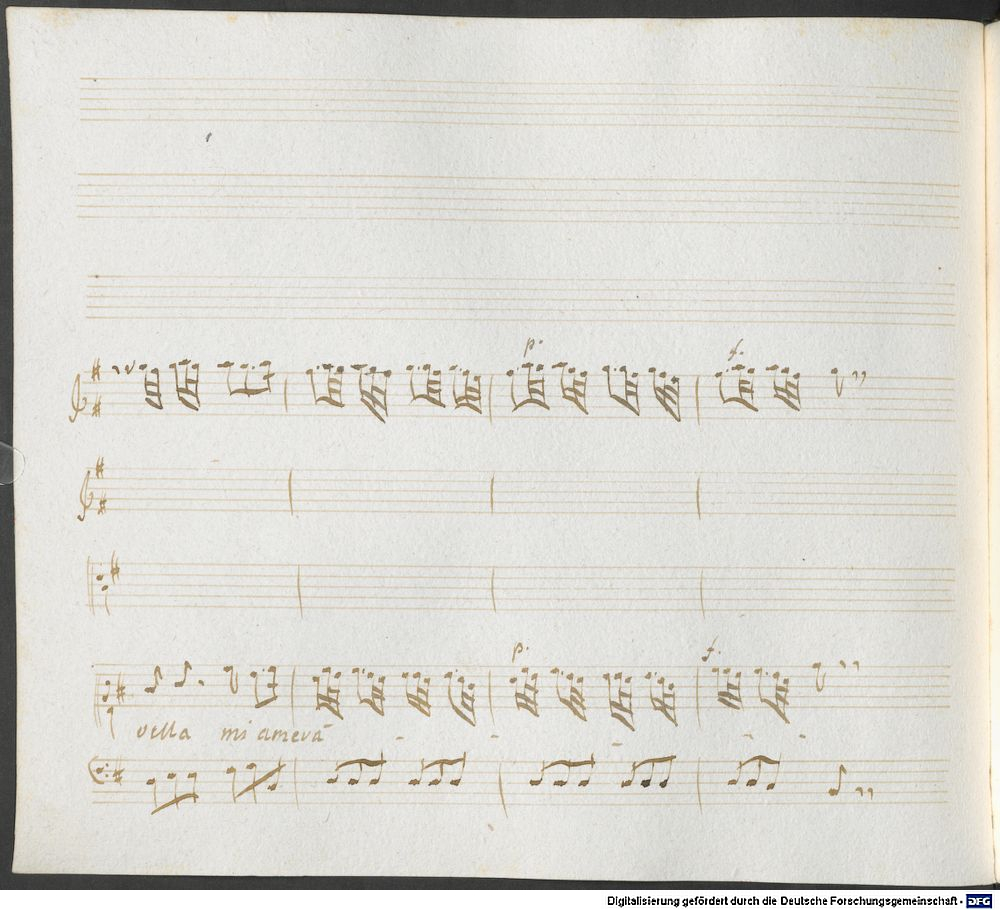 p. f.
p. f.
vella mi amerà - - - - -
Digitalisierung gefördert durch die Deutsche Forschungsgemeinschaft - DFG